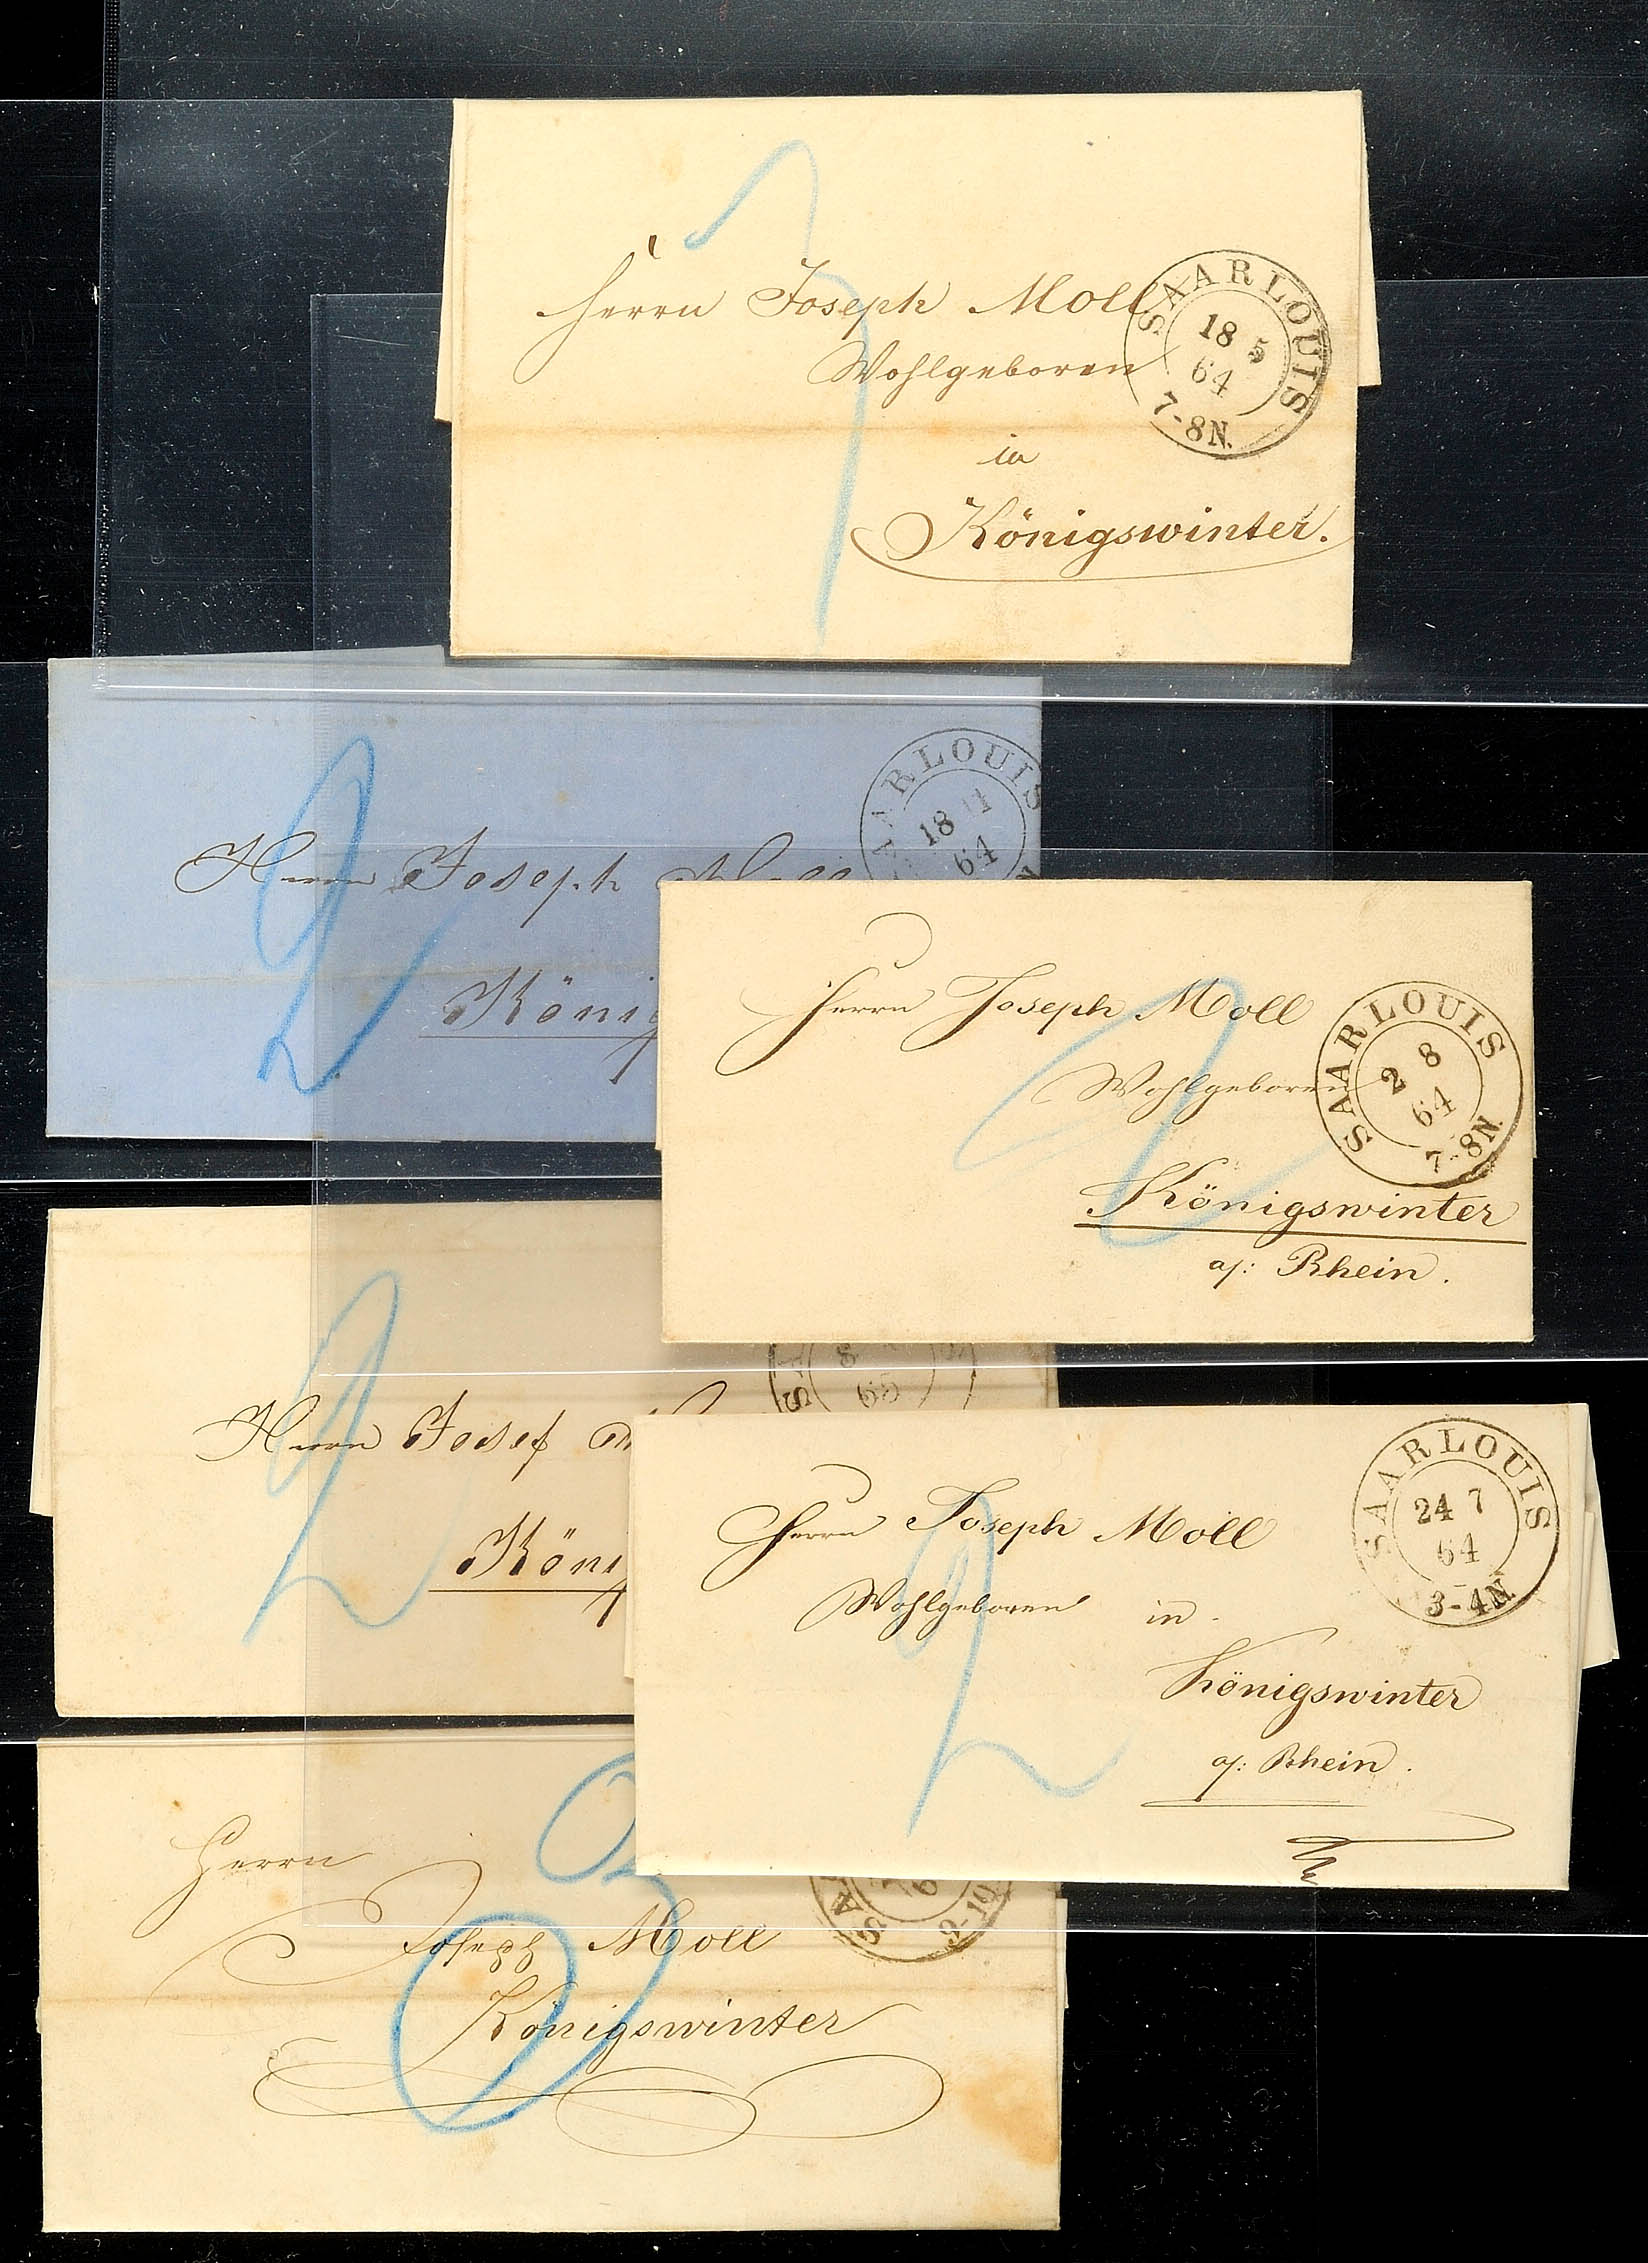 Herrn Joseph Moll
Wohlgeboren
in
Königswinter.
SAARLOUIS
18 5
64
7-8N.
2
Herrn Joseph
König
AARLOUIS
18 11
64
Herrn Joseph Moll
Wohlgeboren
Königswinter
a/: Rhein.
2
SAARLOUIS
2 8
64
7-8N.
2
Herrn Josef
Köni
8
65
Herrn Joseph Moll
Wohlgeboren in
Königswinter
a/: Rhein.
2
SAARLOUIS
24 7
64
3-4N
Herrn
Joseph Moll
Königswinter
SA
9-10